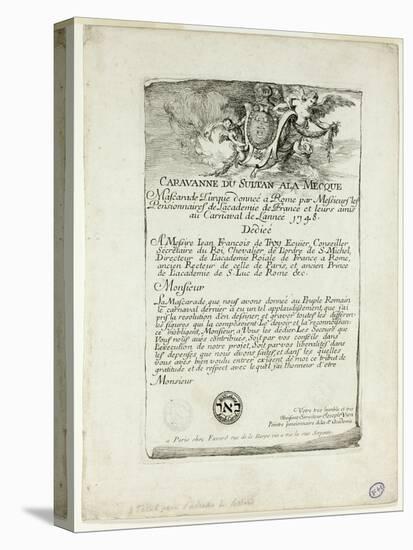 CARAVANNE DU SULTAN A LA MECQUE
Mascarade Turque donneé à Rome par Messieurs les
Pensionnaires de L'academie de France et leurs amis
au Carnaval de L'anneé 1748.
Dédieé
A Messire Jean François de Troy Ecuier, Conseiller,
Sécrétaire du Roi, Chevalier de L'ordre de St Michel,
Directeur de L'academie Roiale de France à Rome,
ancien Recteur de celle de Paris, et ancien Prince
de L'academie de S. Luc de Rome &c.
Monsieur
La Mascarade, que nous avons donneé au Peuple Romain
le carnaval dernier à eu un tel applaudissement, que j'ai
pris la resolution d'en dessiner, et graver toutes les differen-
tes figures qui la composent. Le devoir et la reconnoissan-
ce m'obligent, Monsieur, a Vous les dédier. Les Secours que
Vous nous avés contribués, Soit par vos conseils dans
L'execution de notre projet, Soit par vos liberalités dans
les depenses que nous avons faites, et dans les quelles
vous avés bien voulu entrer exigent de moi ce tribut de
gratitude et de respect avec le quel j'ai l'honneur d'etre
Monsieur
Votre tres humble et tres
Obeissant Serviteur Joseph Vien
Peintre pensionnaire de la
à Paris chés Favard rue de la Harpe vis a vis la rue Serpente